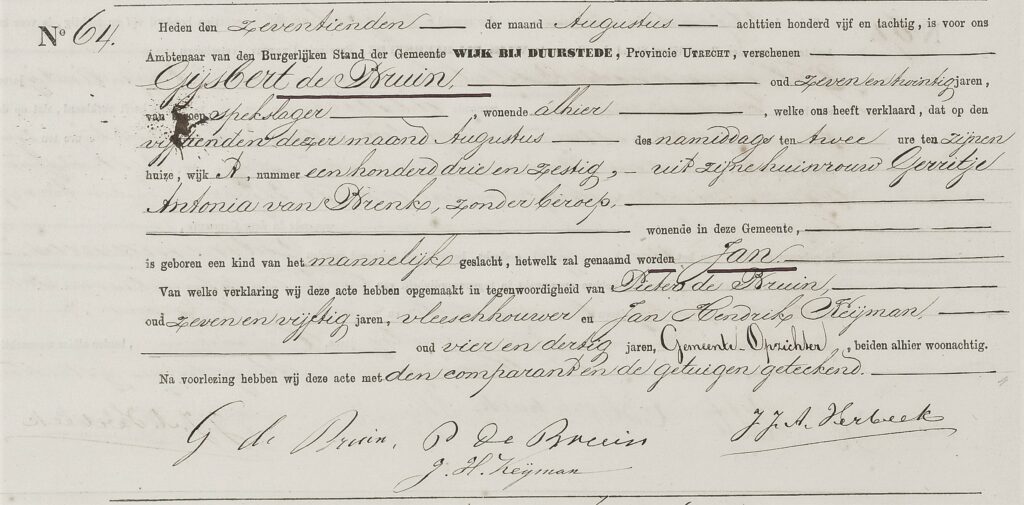 No 64. Heden den zeventienden der maand Augustus achttien honderd vijf en tachtig, is voor ons
Ambtenaar van den Burgerlijken Stand der Gemeente WIJK BIJ DUURSTEDE, Provincie UTRECHT, verschenen
Gijsbert de Bruin, oud zeven en twintig jaren,
van beroep spekslager, wonende alhier, welke ons heeft verklaard, dat op den
vijftienden dezer maand Augustus des namiddags ten twee ure ten zijnen
huize, wijk A, nummer een honderd drie en zestig, uit zijne huisvrouw Gerritje
Antonia van Brenk, zonder beroep,
wonende in deze Gemeente,
is geboren een kind van het mannelijk geslacht, hetwelk zal genaamd worden Jan
Van welke verklaring wij deze acte hebben opgemaakt in tegenwoordigheid van Pieter de Bruin,
oud zeven en vijftig jaren, vleeschhouwer en Jan Hendrik Keijman,
oud vier en dertig jaren, Gemeente-Opzichter, beiden alhier woonachtig.
Na voorlezing hebben wij deze acte met den comparant en de getuigen geteekend.
G de Bruin, P de Bruin J. J. A. Verbeek
J. H. Keijman